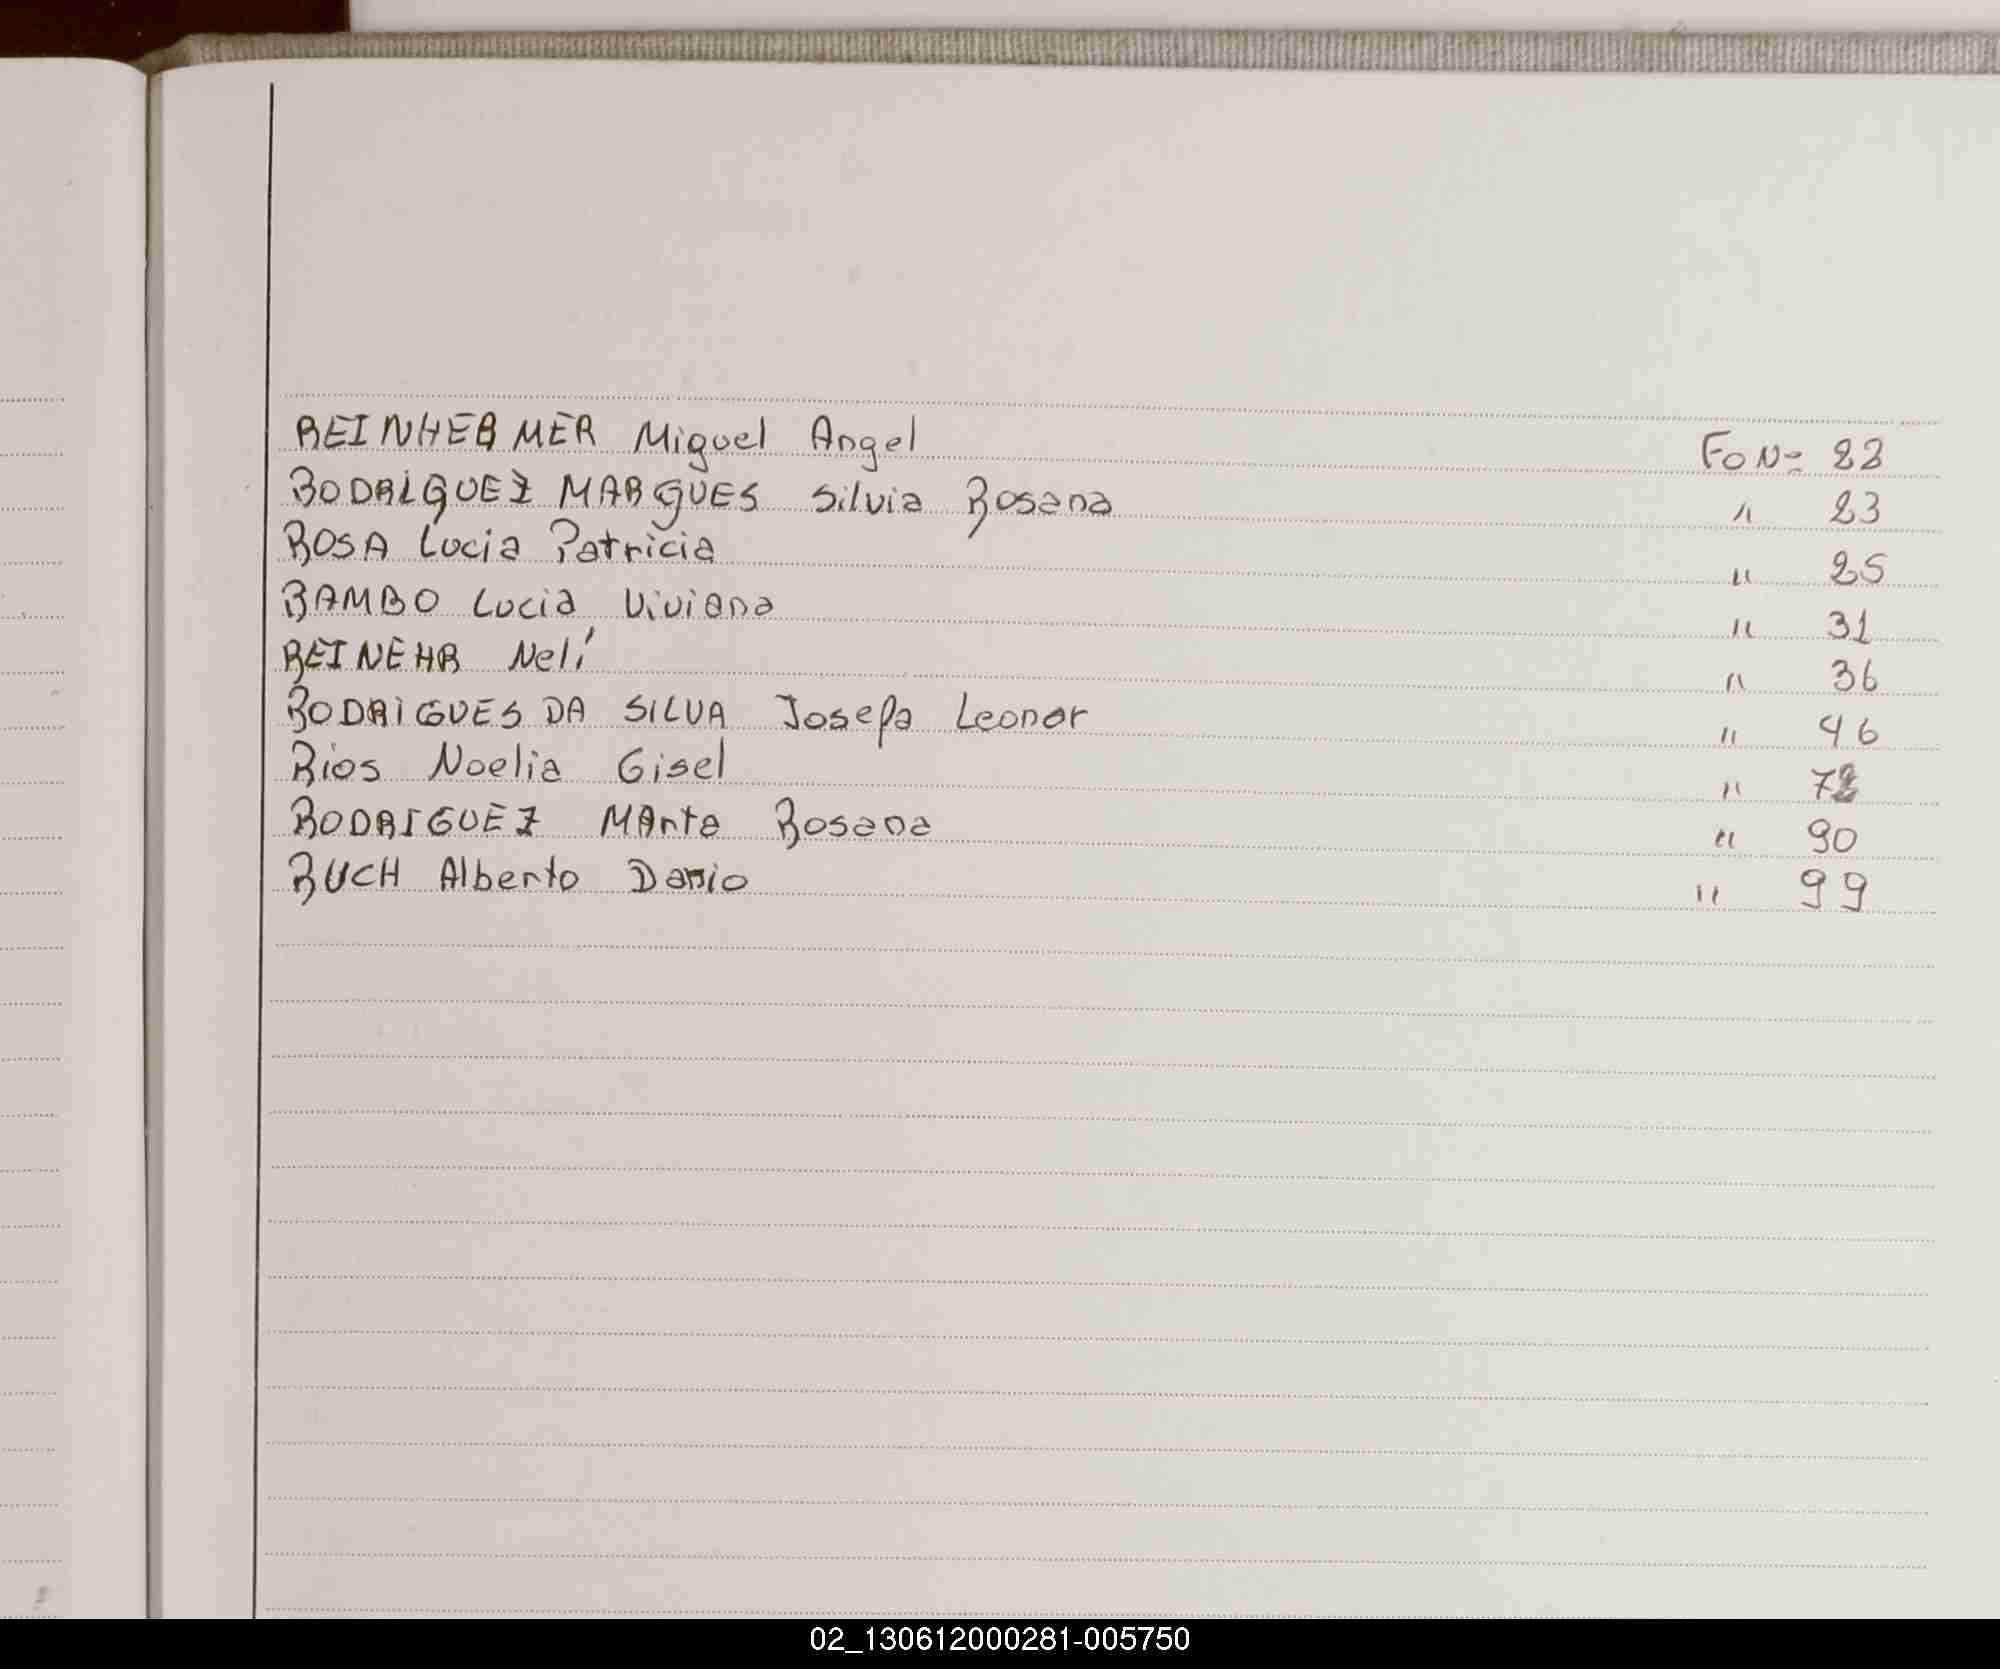 REINHERMER Miguel Angel Fo Nº 22
RODRIGUEZ MARQUES Silvia Rosana " 23
ROSA Lucia Patricia " 25
RAMBO Lucia Viviana " 31
REINEHR Nelí " 36
RODRIGUES DA SILVA Josefa Leonor " 46
Rios Noelia Gisel " 72
RODRIGUEZ MArta Rosana " 90
RUCH Alberto Dario " 99
02_130612000281-005750